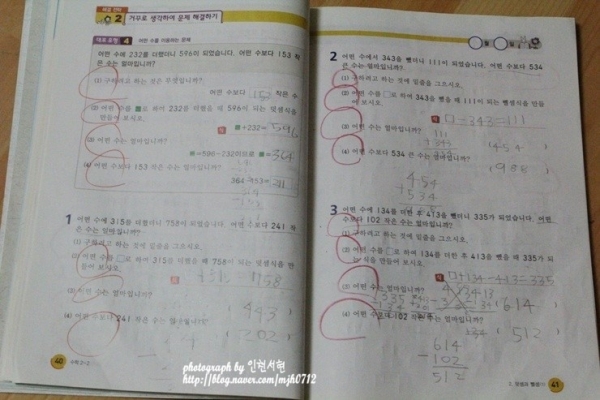 해결 전략
2 거꾸로 생각하여 문제 해결하기
대표 유형 4 어떤 수를 이용하는 문제
어떤 수에 232를 더했더니 596이 되었습니다. 어떤 수보다 153 작
은 수는 얼마입니까?
(1) 구하려고 하는 것은 무엇입니까?
어떤 수보다 153 작은 수
(2) 어떤 수를 ■로 하여 232를 더했을 때 596이 되는 덧셈식을
만들어 보시오.
답 ■+232=596
(3) 어떤 수는 얼마입니까?
■=596-232이므로 ■=364
(4) 어떤 수보다 153 작은 수는 얼마입니까?
364-153=211
1 어떤 수에 315를 더했더니 758이 되었습니다. 어떤 수보다 241 작
은 수는 얼마입니까?
(1) 구하려고 하는 것에 밑줄을 그으시오.
(2) 어떤 수를 □로 하여 315를 더했을 때 758이 되는 덧셈식을 만
들어 보시오.
(3) 어떤 수는 얼마입니까?
( 443 )
(4) 어떤 수보다 241 작은 수는 얼마입니까?
( 202 )
40 수학 2-2
월 일
2 어떤 수에서 343을 뺐더니 111이 되었습니다. 어떤 수보다 534
큰 수는 얼마입니까?
(1) 구하려고 하는 것에 밑줄을 그으시오.
(2) 어떤 수를 □로 하여 343을 뺐을 때 111이 되는 뺄셈식을 만들
어 보시오.
답 □-343=111
(3) 어떤 수는 얼마입니까?
111
343
( 454 )
(4) 어떤 수보다 534 큰 수는 얼마입니까?
( 988 )
454
+534
3 어떤 수에 134를 더한 후 413을 뺐더니 335가 되었습니다. 어떤
수보다 102 작은 수는 얼마입니까?
(1) 구하려고 하는 것에 밑줄을 그으시오.
(2) 어떤 수를 □로 하여 134를 더한 후 413을 뺐을 때 335가 되
는 식을 만들어 보시오.
답 □+134-413=335
(3) 어떤 수는 얼마입니까?
( 614 )
(4) 어떤 수보다 102 작은 수는 얼마입니까?
( 512 )
614
-102
512
41
photograph by 인현서현
http://blog.naver.com/mjh0712